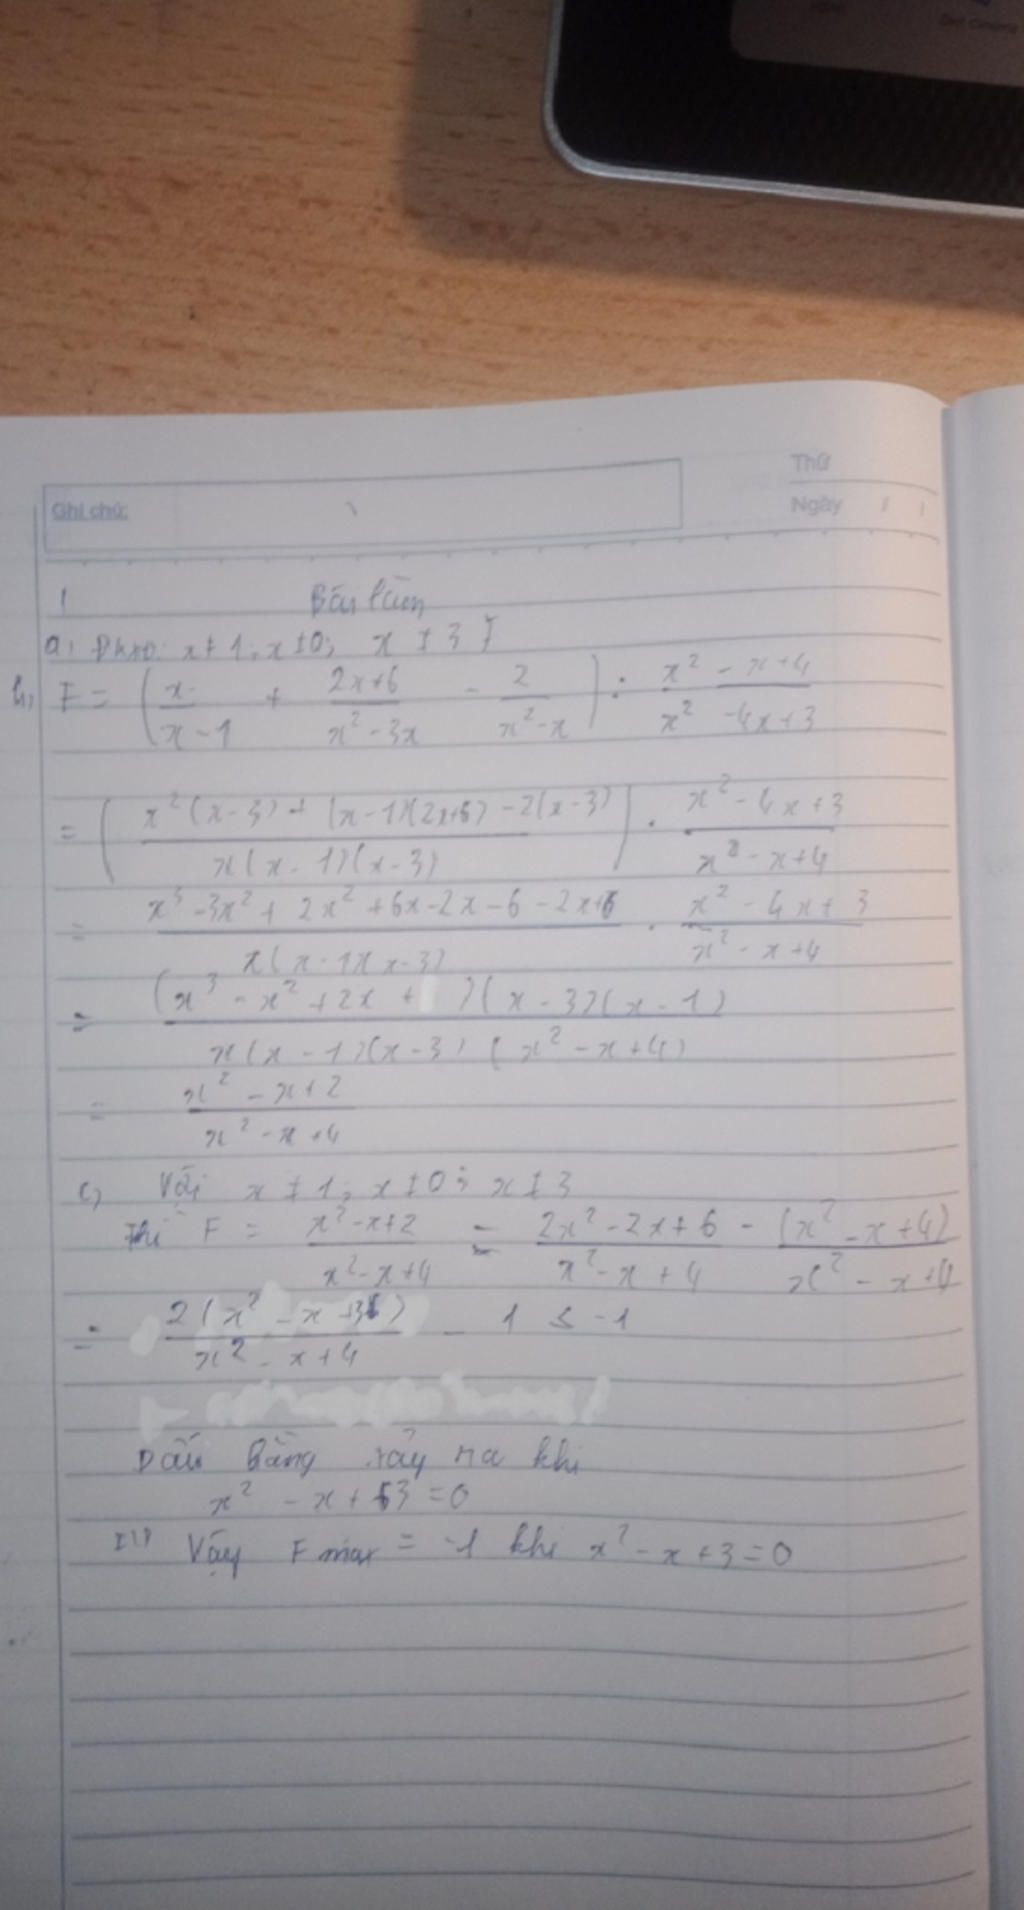 Thứ
Ghi chú:
Ngày / /
1 Bài làm
a, ĐKXĐ: x ≠ 1; x ≠ 0; x ≠ 3
b, F = (x/(x-1) + (2x+6)/(x²-3x) - 2/(x²-x)) : (x²-x+4)/(x²-4x+3)
= ((x²(x-3) + (x-1)(2x+6) - 2(x-3))/(x(x-1)(x-3))) . (x²-4x+3)/(x²-x+4)
= (x³-3x²+2x²+6x-2x-6-2x+6)/(x(x-1)(x-3)) . (x²-4x+3)/(x²-x+4)
= ((x³-x²+2x+ )(x-3)(x-1))/(x(x-1)(x-3)(x²-x+4))
= (x²-x+2)/(x²-x+4)
c, Với x ≠ 1; x ≠ 0; x ≠ 3
Thì F = (x²-x+2)/(x²-x+4) = (2x²-2x+6)/(x²-x+4) - (x²-x+4)/(x²-x+4)
= 2(x²-x+3)/(x²-x+4) - 1 ≤ -1
Dấu bằng xảy ra khi
x² - x + 3 = 0
Vậy F max = -1 khi x² - x + 3 = 0